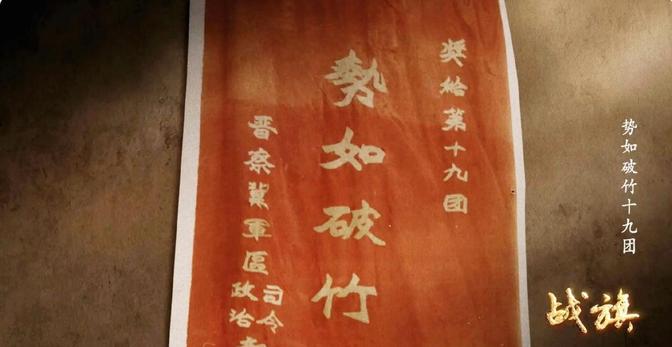 奖给第十九团
勢如破竹
晋察冀軍區
司令
政治
势如破竹十九团
战旗